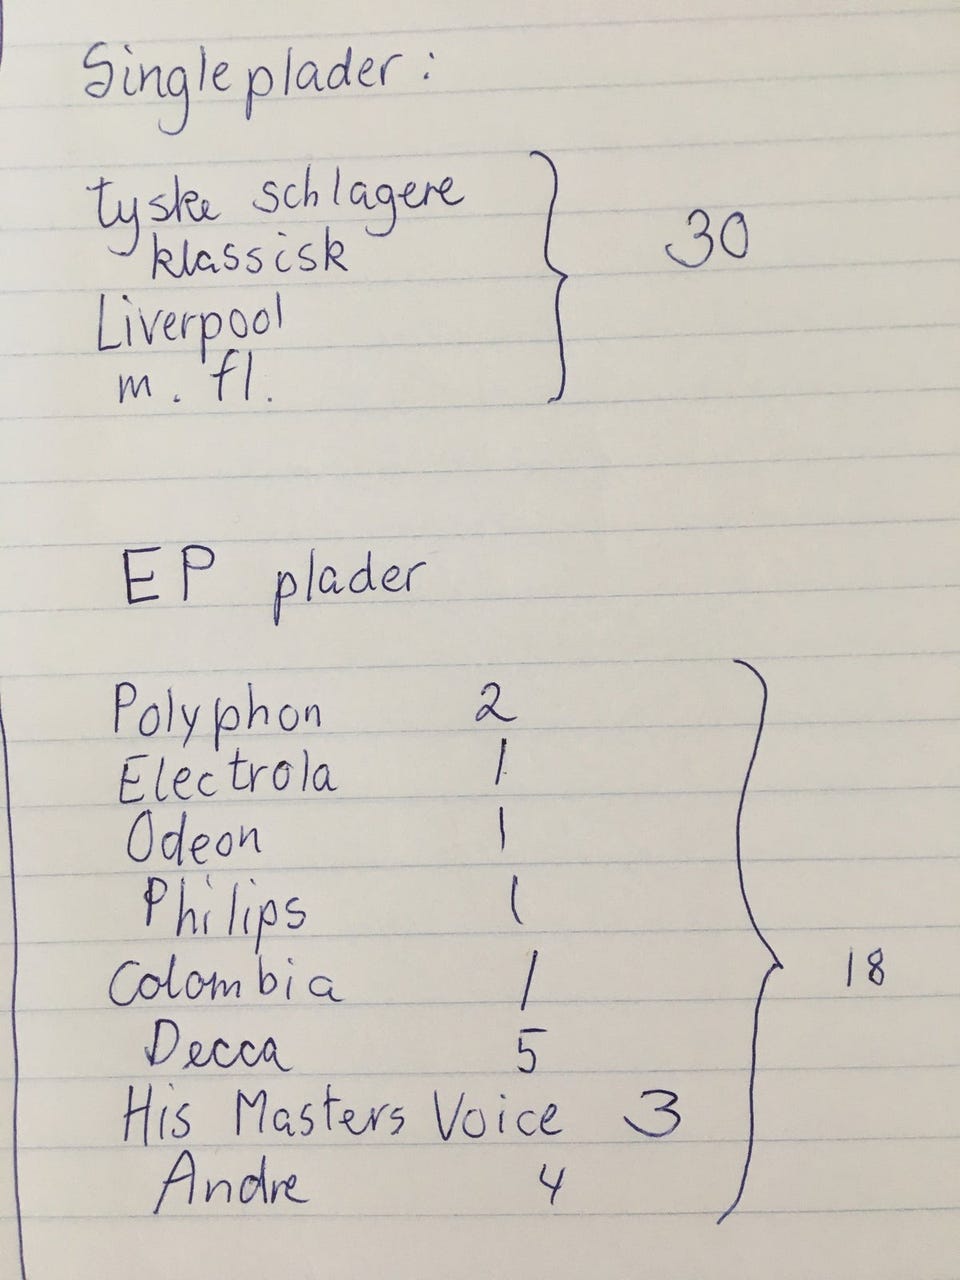 Singleplader:
tyske schlagere
klassisk
30
Liverpool
m. fl.
EP plader
Polyphon 2
Electrola 1
Odeon 1
Philips 1
Colombia 1
18
Decca 5
His Masters Voice 3
Andre 4